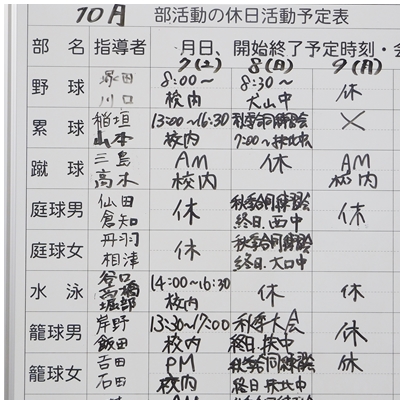 10月 部活動の休日活動予定表
部 名 指導者 月日、開始終了予定時刻・会
7(土) 8(日) 9(月)
野 球 塚田 8:00〜 8:30〜 休
川口 校内 犬山中
累 球 稲垣 13:00〜16:30 秋季合同練習会 ×
山本 校内 7:00〜扶北中
蹴 球 三島 AM 休 AM
高木 校内 校内
庭球男 仙田 休 秋季合同練習会 休
倉知 終日.西中
庭球女 丹羽 休 秋季合同練習会
相津 終日.大口中
水 泳 谷口 14:00〜16:30 休 休
高橋 校内
堀部
籠球男 岸野 13:30〜17:00 秋季大会 休
飯田 校内 終日.扶中
籠球女 吉田 PM 秋季合同練習会 休
石田 校内 終日 扶北中